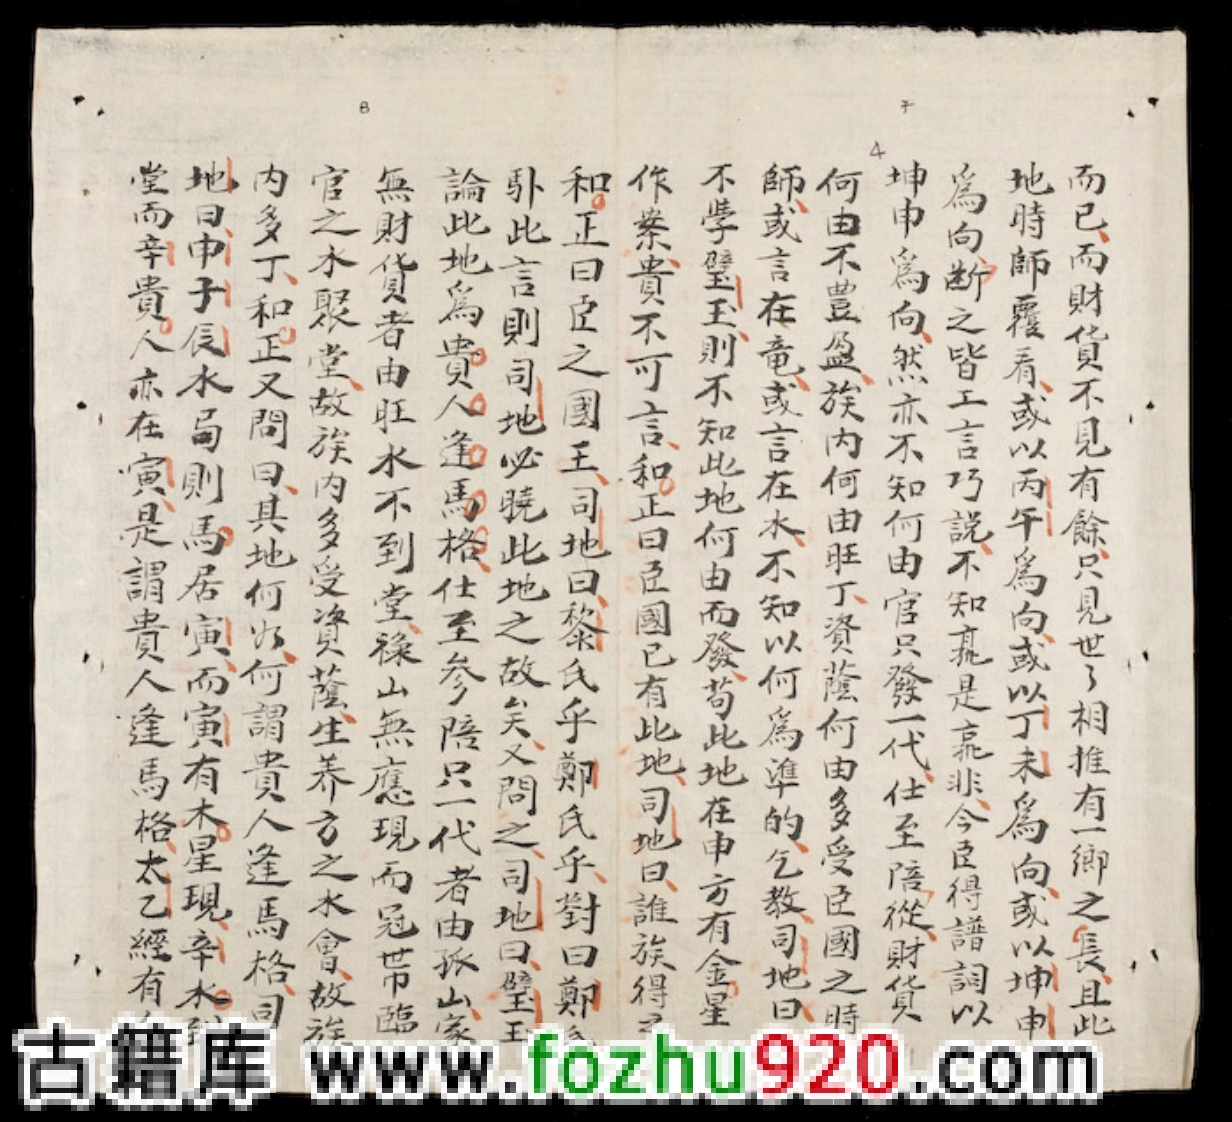 7
8
4
而已而財貨不見有餘只見世〻相推有一鄉之長且此
地時師覆看或以丙午爲向或以丁未爲向或以坤申
爲向断之皆工言巧説不知孰是孰非今臣得譜詞以
坤申爲向然亦不知何由官只發一代仕至陪從財貨
何由不豊盈族内何由旺丁資蔭何由多受臣國之時
師或言在竜或言在水不知以何爲準的乞教司地曰
不學璧玉則不知此地何由而發苟此地在申方有金星
作案貴不可言和正曰臣國已有此地司地曰誰族得
和正曰臣之國王司地曰黎氏乎鄭氏乎對曰鄭氏
卧此言則司地必曉此地之故矣又問之司地曰璧玉
論此地爲貴人逢馬格仕至参陪只一代者由孤山家
無財貨者由旺水不到堂祿山無應現而冠帶臨
官之水聚堂故族内多受資蔭生养方之水會故族
内多丁和正又問曰其地何如何謂貴人逢馬格司
地曰申子辰水局則馬居寅而寅有木星現辛水到
堂而辛貴人亦在寅是謂貴人逢馬格太乙經有
古籍库 www.fozhu920.com